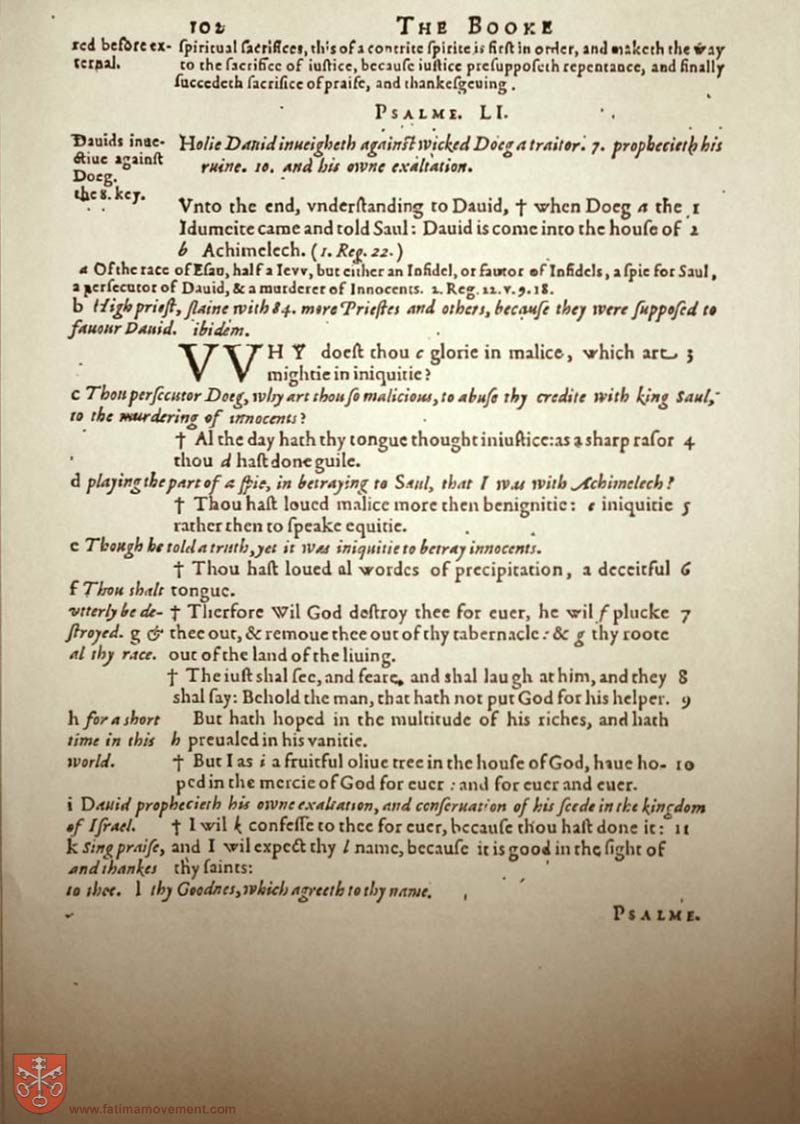 102 THE BOOKE
red before ex- spiritual sacrifices, this of a contrite spirite is first in order, and maketh the way
ternal. to the sacrifice of iustice, because iustice presupposeth repentance, and finally
succedeth sacrifice of praise, and thankesgeuing.
PSALME. LI.
Dauids inue- Holie Dauid inueigheth against wicked Doeg a traitor. 7. prophecieth his
ctiue against ruine. 10. and his owne exaltation.
Doeg.
the 8. key.
Vnto the end, vnderstanding to Dauid, † when Doeg a the 1
Idumeite came and told Saul: Dauid is come into the house of 2
b Achimelech. (1. Reg. 22.)
a Of the race of Esau, half a Ievv, but either an Infidel, or fautor of Infidels, a spie for Saul,
a persecutor of Dauid, & a murderer of Innocents. 2. Reg. 22. v. 9. 18.
b High priest, slaine with 84. more Priestes and others, because they were supposed to
fauour Dauid. ibidem.
VVHY doest thou c glorie in malice, which art 3
mightie in iniquitie?
c Thou persecutor Doeg, why art thou so malicious, to abuse thy credite with king Saul,
to the murdering of innocents?
† Al the day hath thy tongue thought iniustice: as a sharp rasor 4
thou d hast done guile.
d playing the part of a spie, in betraying to Saul, that I was with Achimelech?
† Thou hast loued malice more then benignitie: e iniquitie 5
rather then to speake equitie.
e Though he told a truth, yet it was iniquitie to betray innocents.
† Thou hast loued al wordes of precipitation, a deceitful 6
f Thou shalt tongue.
vtterly be de- † Therfore Wil God destroy thee for euer, he wil f plucke 7
stroyed. g & thee out, & remoue thee out of thy tabernacle: & g thy roote
al thy race. out of the land of the liuing.
† The iust shal see, and feare, and shal laugh at him, and they 8
shal say: Behold the man, that hath not put God for his helper. 9
h for a short But hath hoped in the multitude of his riches, and hath
time in this h preualed in his vanitie.
world. † But I as i a fruitful oliue tree in the house of God, haue ho- 10
ped in the mercie of God for euer: and for euer and euer.
i Dauid prophecieth his owne exaltation, and conseruation of his seede in the kingdom
of Israel. † I wil k confesse to thee for euer, because thou hast done it: 11
k Sing praise, and I wil expect thy l name, because it is good in the sight of
and thankes thy saints:
to thee. l thy Goodnes, which agreeth to thy name.
PSALME.
www.fatimamovement.com